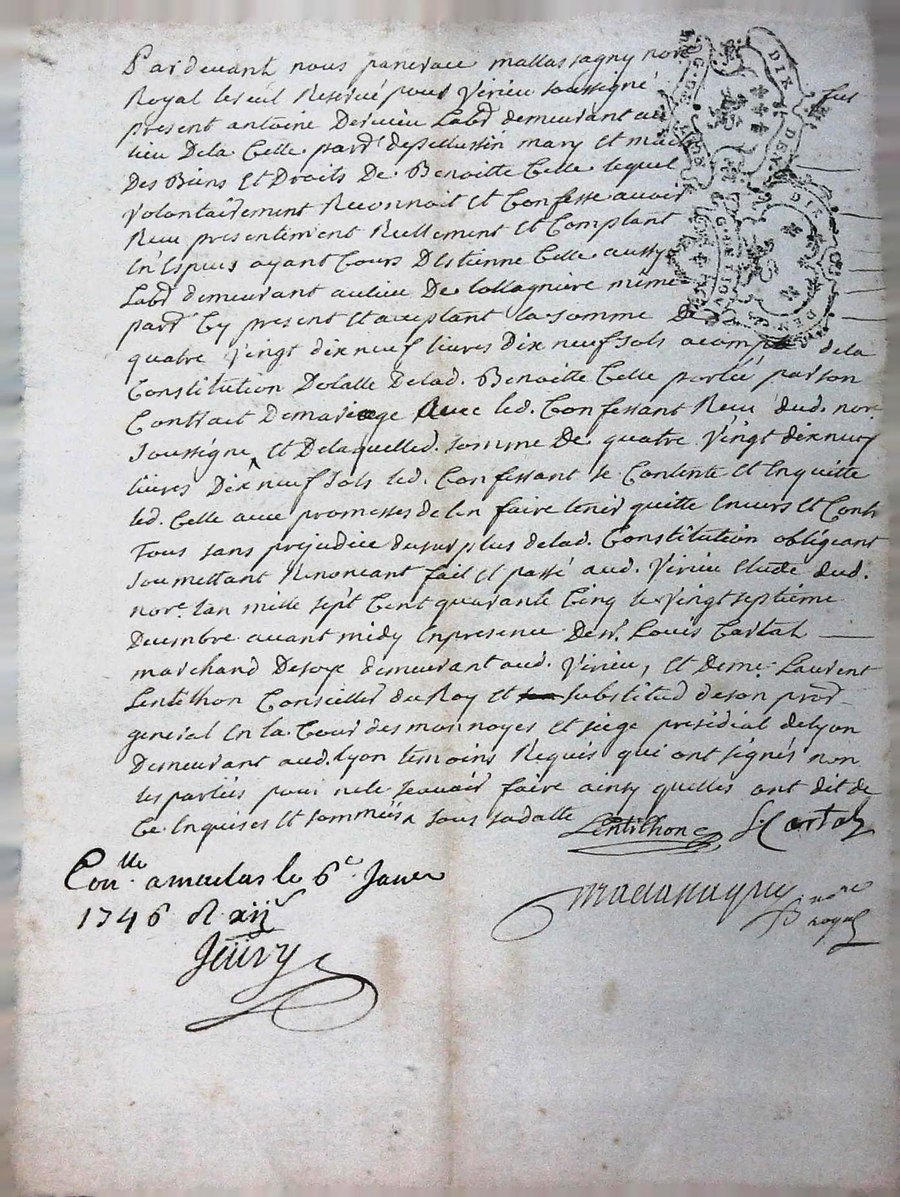 Pardevant nous pancrace mallassagny nore
Royal le seul Reservé pour Virieu soussigné fut
present antoine Dervieu Labr demeurant au
lieu Dela Celle parr depellussin mary et maitre
Des Biens Et Droits De Benoitte Celle lequel
volontairement Reconnoit et Confesse avoir
Receu presentement Reellement et Comptant
En Especes ayant Cours D'Estienne Celle aussy
Labr demeurant au lieu De Collagniere même
parr Cy present et acceptant la somme De
quatre Vingt dix neuf livres Dix neuf sols acompte dela
Constitution Defaitte Delad. Benoitte Celle portée par son
Contract Demariage Avec led. Confessant Receu dud. nore
soussigné et Delaquelled. somme De quatre Vingt dix neuf
livres Dix neuf sols led. Confessant se Contente et Enquitte
led. Celle avec promesses de l'en faire tenir quitte Envers et Contre
Tous sans prejudice du surplus delad. Constitution obligeant
soumettant Renoncant fait et passé aud. Virieu Etude dud.
nore. lan mille sept Cent quarante Cinq le vingt septieme
Decembre avant midy En presence De sr. Louis Cartal
marchand De soye demeurant aud. Virieu, et de me. Laurent
Lentilhon Conseiller du Roy et substitud de son procr
general En la Cour des monnoyes et siege presidial de lyon
Demeurant aud. lyon temoins Requis qui ont signés non
les parties pour ne le sçavoir faire ainsy quelles ont dit de
Ce Enquises et sommées sous sa datte Lentilhon L: Cartal
Conlle. a meulas le 6e Janer
1746 R xijs
Jeüry
Mallassagny nore
royal